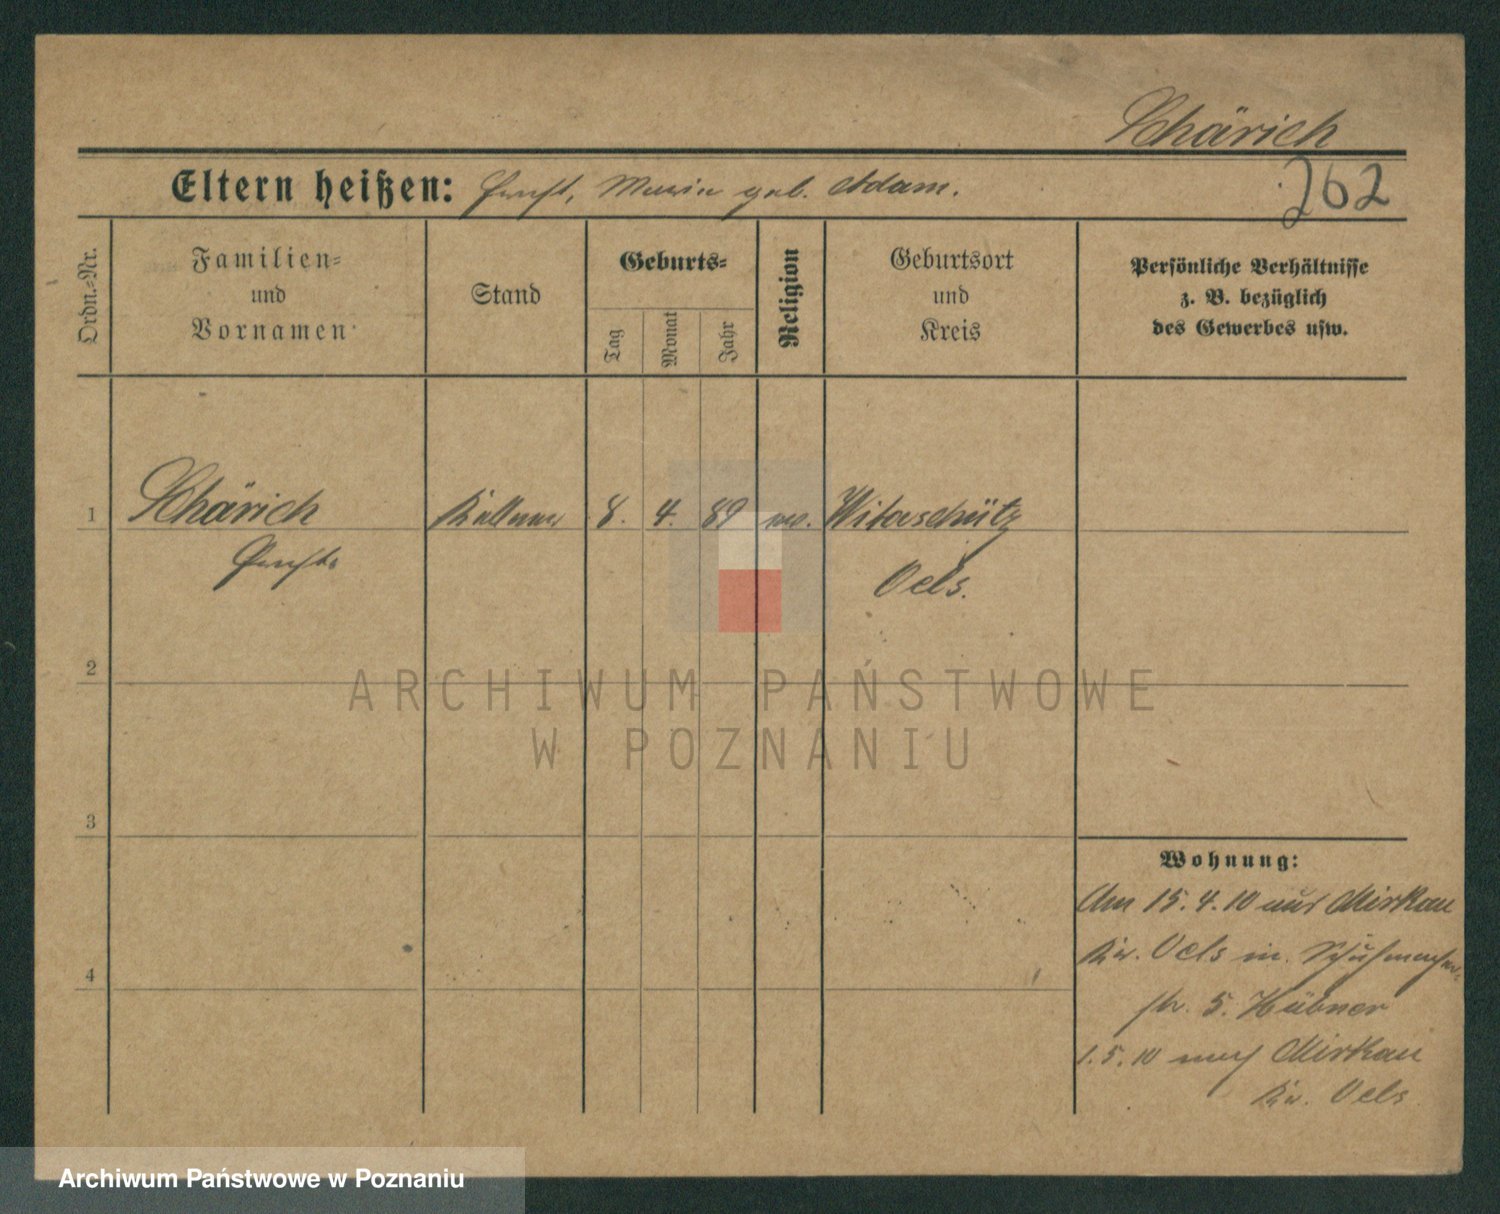 Schärich
Eltern heißen: Ernst, Maria geb. Adam.
262
Ordn.-Nr.
Familien-
und
Vornamen
Stand
Geburts-
Tag
Monat
Jahr
Religion
Geburtsort
und
Kreis
Persönliche Verhältnisse
z. B. bezüglich
des Gewerbes usw.
1 Schärich Kellner 8. 4. 89 ev. Witaschütz
Ernst. Oels.
2
3
4
ARCHIWUM PAŃSTWOWE
W POZNANIU
Wohnung:
Am 15.4.10 aus Mirkau
Kr. Oels in Schuhmacher-
str. 5. Hübner
1.5.10 nach Mirkau
Kr. Oels
Archiwum Państwowe w Poznaniu